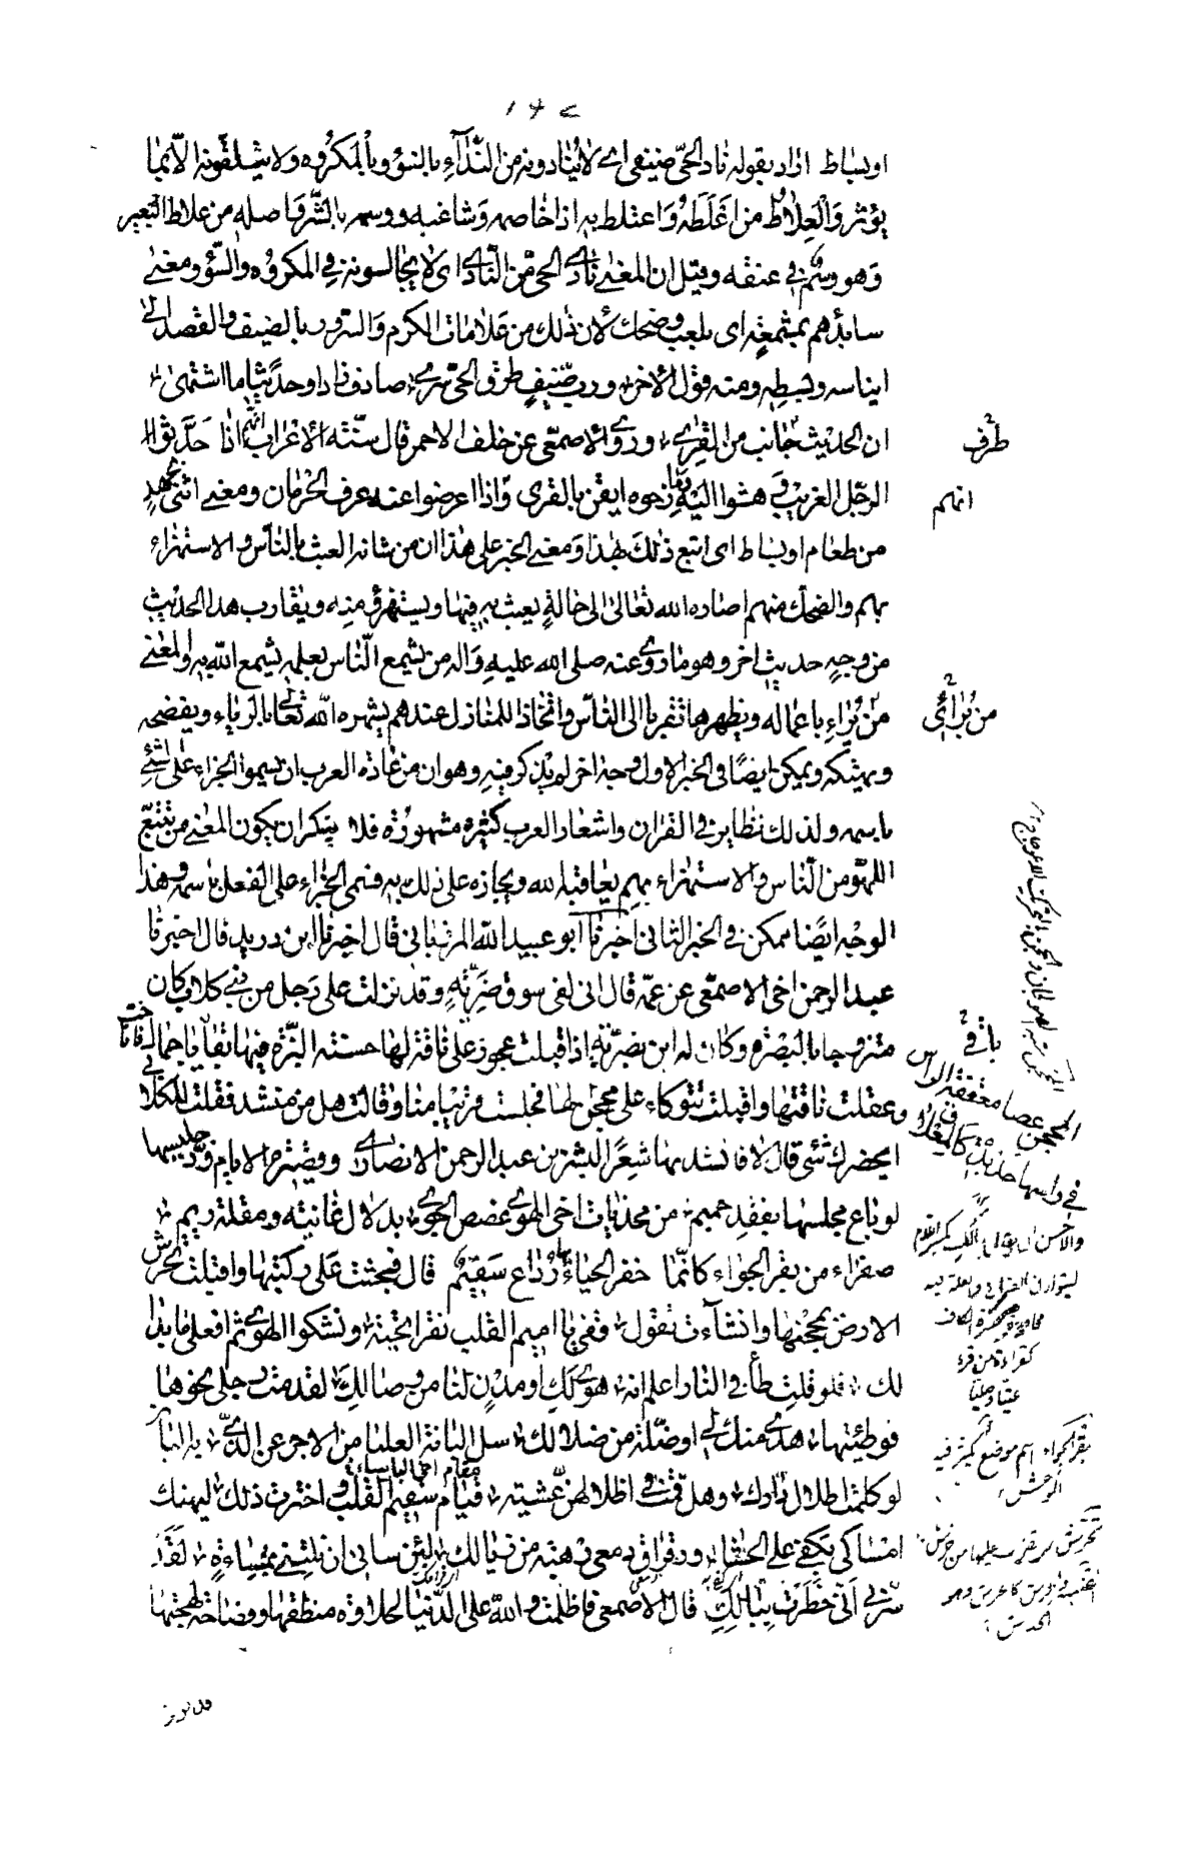 ١٤٧
او بساط اراد بقوله نادى الحيّ ضيفي اي لا يُنادونه من النّداء بالسّوء و بالمكروه ولا يتلقّونه الّا بما
يؤثر والعِلاط من اعتلطه واعتلط به اذا خاصمه وشاغبه ووسمه بالشّر واصله من علاط البعير
وهو وسْم في عنقه وقيل ان المعنى نادى الحي من النّادي اي لا يجالسونه في المكروه والسّوء ومعنى
سابدهم بمشمعة اي بلعب وضحك لأن ذلك من علامات الكرم والسّرور بالضيف والقصد الى
ايناسه وبسطه ومنه قول الآخر وربّ ضيفٍ طرق الحيّ سرى صادف زادا وحديثا ما اشتهى
ان الحديث جانب من القرى وروى الاصمعي عن خلف الاحمر قال سنّة الاعراب انهم اذا حدّثوا
الرجل الغريب وهشوا اليه ومازحوه ايقن بالقرى واذا اعرضوا عنه عرف الحرمان ومعنى اثنى بجهد
من طعام او بساط اي اتبع ذلك بهذا ومعنى الخبر على هذا ان من شانه العبث بالنّاس والاستهزاء
بهم والضحك منهم اصاره الله تعالى الى حالة يعبث به فيها ويستهزؤ منه ويقارب هذا الحديث
من وجهٍ حديث اخر وهو ما روى عنه صلى الله عليه واله من يُسمّع النّاس بعلمه يسمّع الله به والمعنى
من يُرائي باعماله ويظهرها تقرّبا الى النّاس واتخاذا للمنازل عندهم يشهره الله تعالى بالرياء ويفضحه
ويهتكه ويمكن ايضًا في الخبر الاول وجه اخر لم يذكر فيه وهو ان من عادة العرب ان يسموا الجزاء على الشئ
باسمه ولذلك نظاير في القران واشعار العرب كثيرة مشهورة فلا ينكر ان يكون المعنى من يتتبّع
اللهو من النّاس والاستهزاء بهم يعاقبه الله ويجازه على ذلك به فسمى الجزاء على الفعل باسمه وهذا
الوجه ايضًا ممكن في الخبر الثاني اخبرنا ابو عبيد الله المرزباني قال اخبرنا ابن دريد قال اخبرنا
عبد الرحمن اخي الاصمعي عن عمه قال اني لفي سوق ضريّة وقد نزلت على رجل من بني كلاب كان
متزوجا بالبصرة وكان له ابن بضريّة اذ اقبلت عجوز على ناقة لها حسنة البزّة فيها بقايا جمال فاناخت
وعقلت ناقتها واقبلت تتوكاء على محجن لها فجلست قريبا منّا وقالت هل من منشد فقلت للكلابي
ايحضرك شئ قال لا فانشدتها شعرًا لبشر بن عبد الرحمن الانصاري وقصيرة الايام ودّ جليسها
لو باع مجلسها بفقد حميم من محذيات اخي الهوى غصص الجوى بدلال غانية ومقلة ريم
صفراء من بقر الجواء كانّما خفر الحياء بها رُداع سقيم قال فجثت على ركبتيها واقبلت تحرّش
الارض بمحجنها وانشأت تقول قفي يا اميم القلب نقرا تحيّة ونشكوا الهوى ثم افعلي ما بدا
لك فلو قلت طأ في النار اعلم انه هوى لك او مدنٍ لنا من وصالك لقدمت رجلي نحوها
فوطئتها هدى منك لي او ضلّة من ضلالك سل البانة العليا من الاجرع الذي به البان
لو كلمت اطلال دارك وهل قمت في اظلالهنّ عشيّة قيام سقيم القلب واخترت ذلك ليهنك
مقام اخي الباساء
امساكي بكفي على الحشا ورقراق دمعي رهبة من زيالك لئن ساني ان نلتني بمساءةٍ لقد
سرّني انّي خطرت ببالك قال الاصمعي فاظلمت والله على الدّنيا لحلاوة منطقها وفصاحة لهجتها
طرق
انهم
من يرائي
باقي
المحجن عصا معقفة الراس
بقر الجواء اسم موضع كثير فيه
الوحش